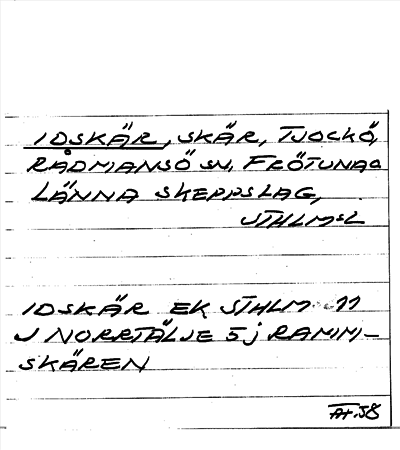 IDSKÄR, SKÄR, TJOCKÖ,
RÅDMANSÖ SN, FRÖTUNA o
LÄNNA SKEPPSLAG,
STHLMSL
IDSKÄR EK STHLM 11
J NORRTÄLJE 5j RAMM-
SKÄREN